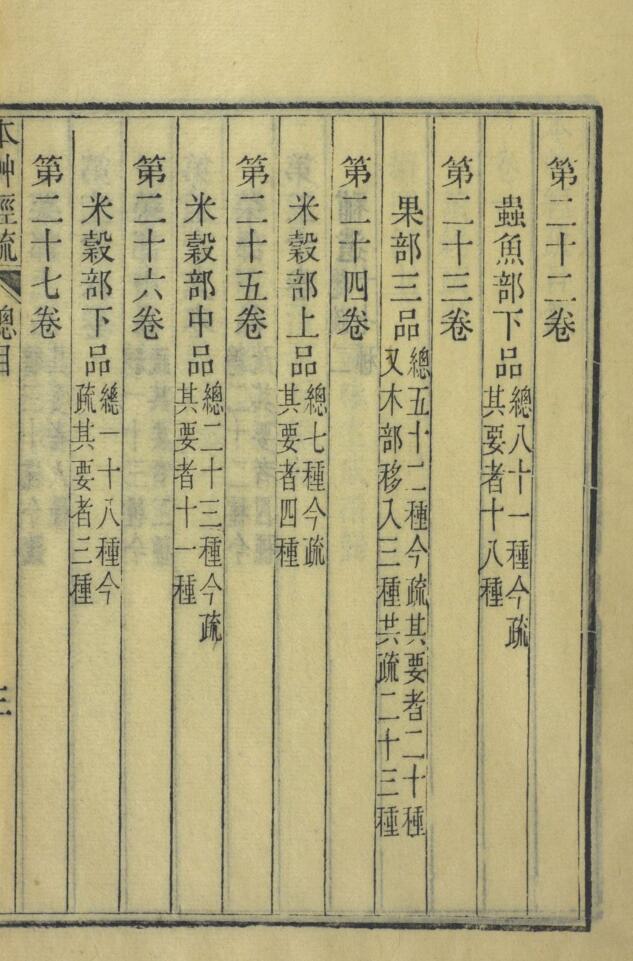 第二十二卷
蟲魚部下品總八十一種今疏
其要者十八種
第二十三卷
果部三品總五十二種今疏其要者二十種
又木部移入三種共疏二十三種
第二十四卷
米穀部上品總七種今疏
其要者四種
第二十五卷
米穀部中品總二十三種今疏
其要者十一種
第二十六卷
米穀部下品總一十八種今
疏其要者三種
第二十七卷
本艸經疏 總目 三